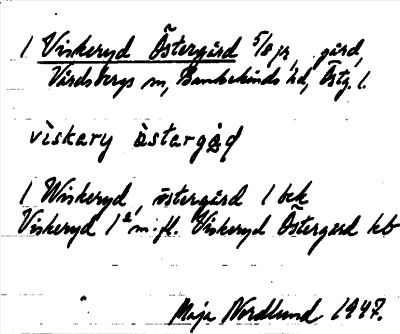 1 Viskeryd Östergård 5/8 jr, gård,
Vårdsbergs sn, Bankekinds hd, Östg. l.
vìskary òstargạ̊d
1 Wiskeryd, östergård 1 bek
Viskeryd 1² m.fl. Viskeryd Östergård kb
Maja Nordlund 1947.